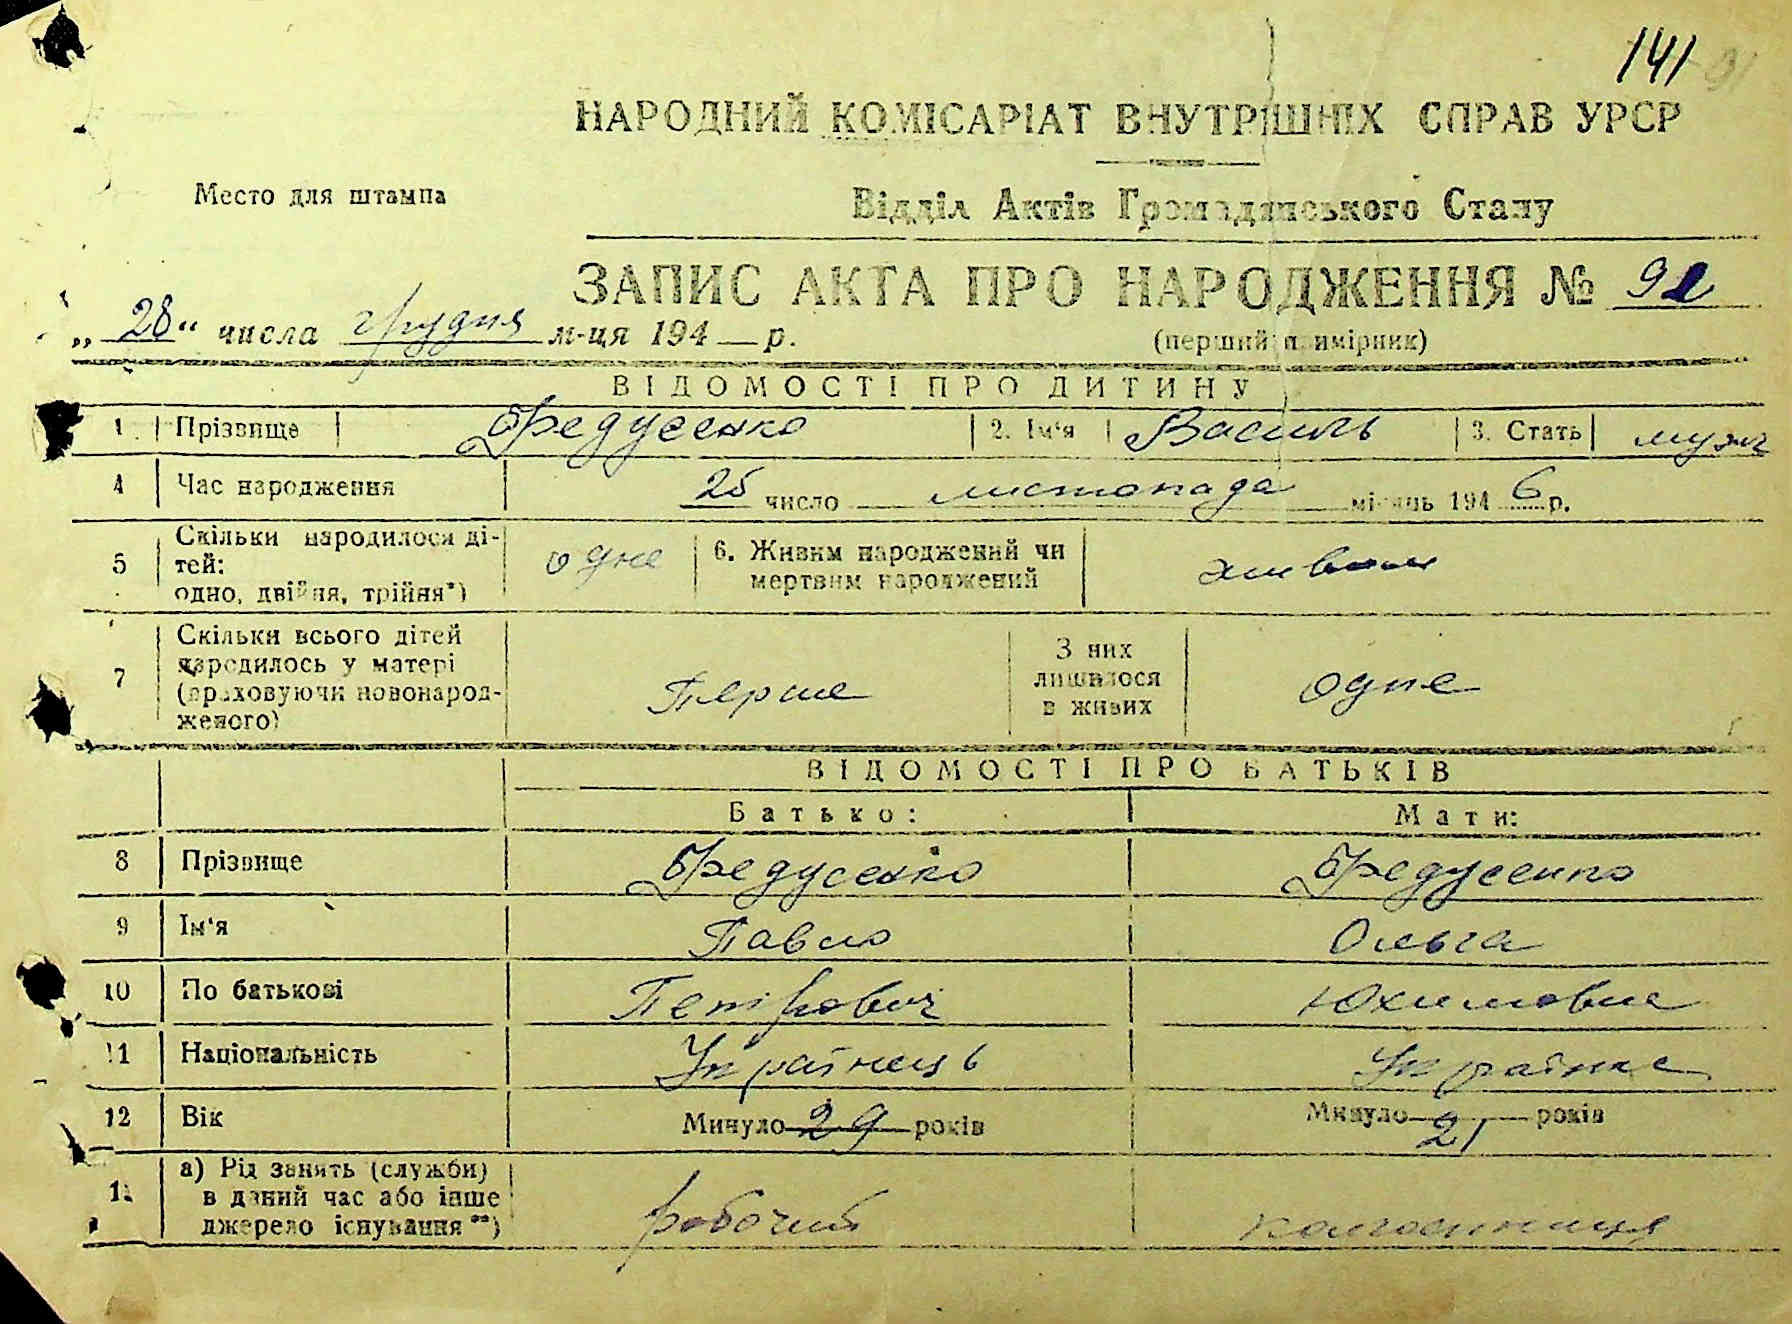 141
НАРОДНИЙ КОМІСАРІАТ ВНУТРІШНІХ СПРАВ УРСР
Место для штампа
Відділ Актів Громадянського Стану
ЗАПИС АКТА ПРО НАРОДЖЕННЯ №
„28“ числа грудня м-ця 194 р.
(перший примірник)
ВІДОМОСТІ ПРО ДИТИНУ
1 Прізвище Федусенко 2. Ім'я Василь 3. Стать муж
4 Час народження 25 число листопада місяць 194 6 р.
5 Скільки народилося ді-
тей:
одно, двійня, трійня*)
одне
6. Живим народжений чи
мертвим народжений
живим
7 Скільки всього дітей
народилось у матері
(враховуючи новонарод-
женого)
Перше
З них
лишилося
в живих
одне
ВІДОМОСТІ ПРО БАТЬКІВ
Батько: Мати:
8 Прізвище Федусенко Федусенко
9 Ім'я Павло Ольга
10 По батькові Петрович Юхимовна
11 Національність Українець Українка
12 Вік Минуло 29 років Минуло 21 років
а) Рід занять (служби)
в даний час або інше
джерело існування**)
робочий колгоспниця